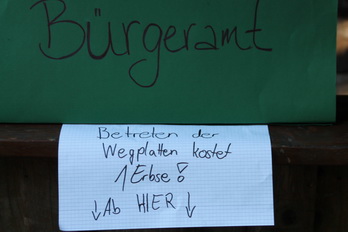 Bürgeramt
Betreten der
Wegplatten kostet
1 Erbse!
↓ Ab HIER ↓